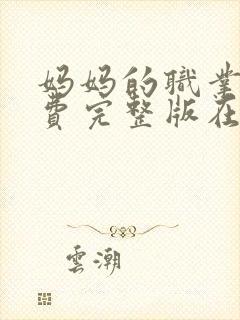 妈妈的職業
費完整版在
雲潮